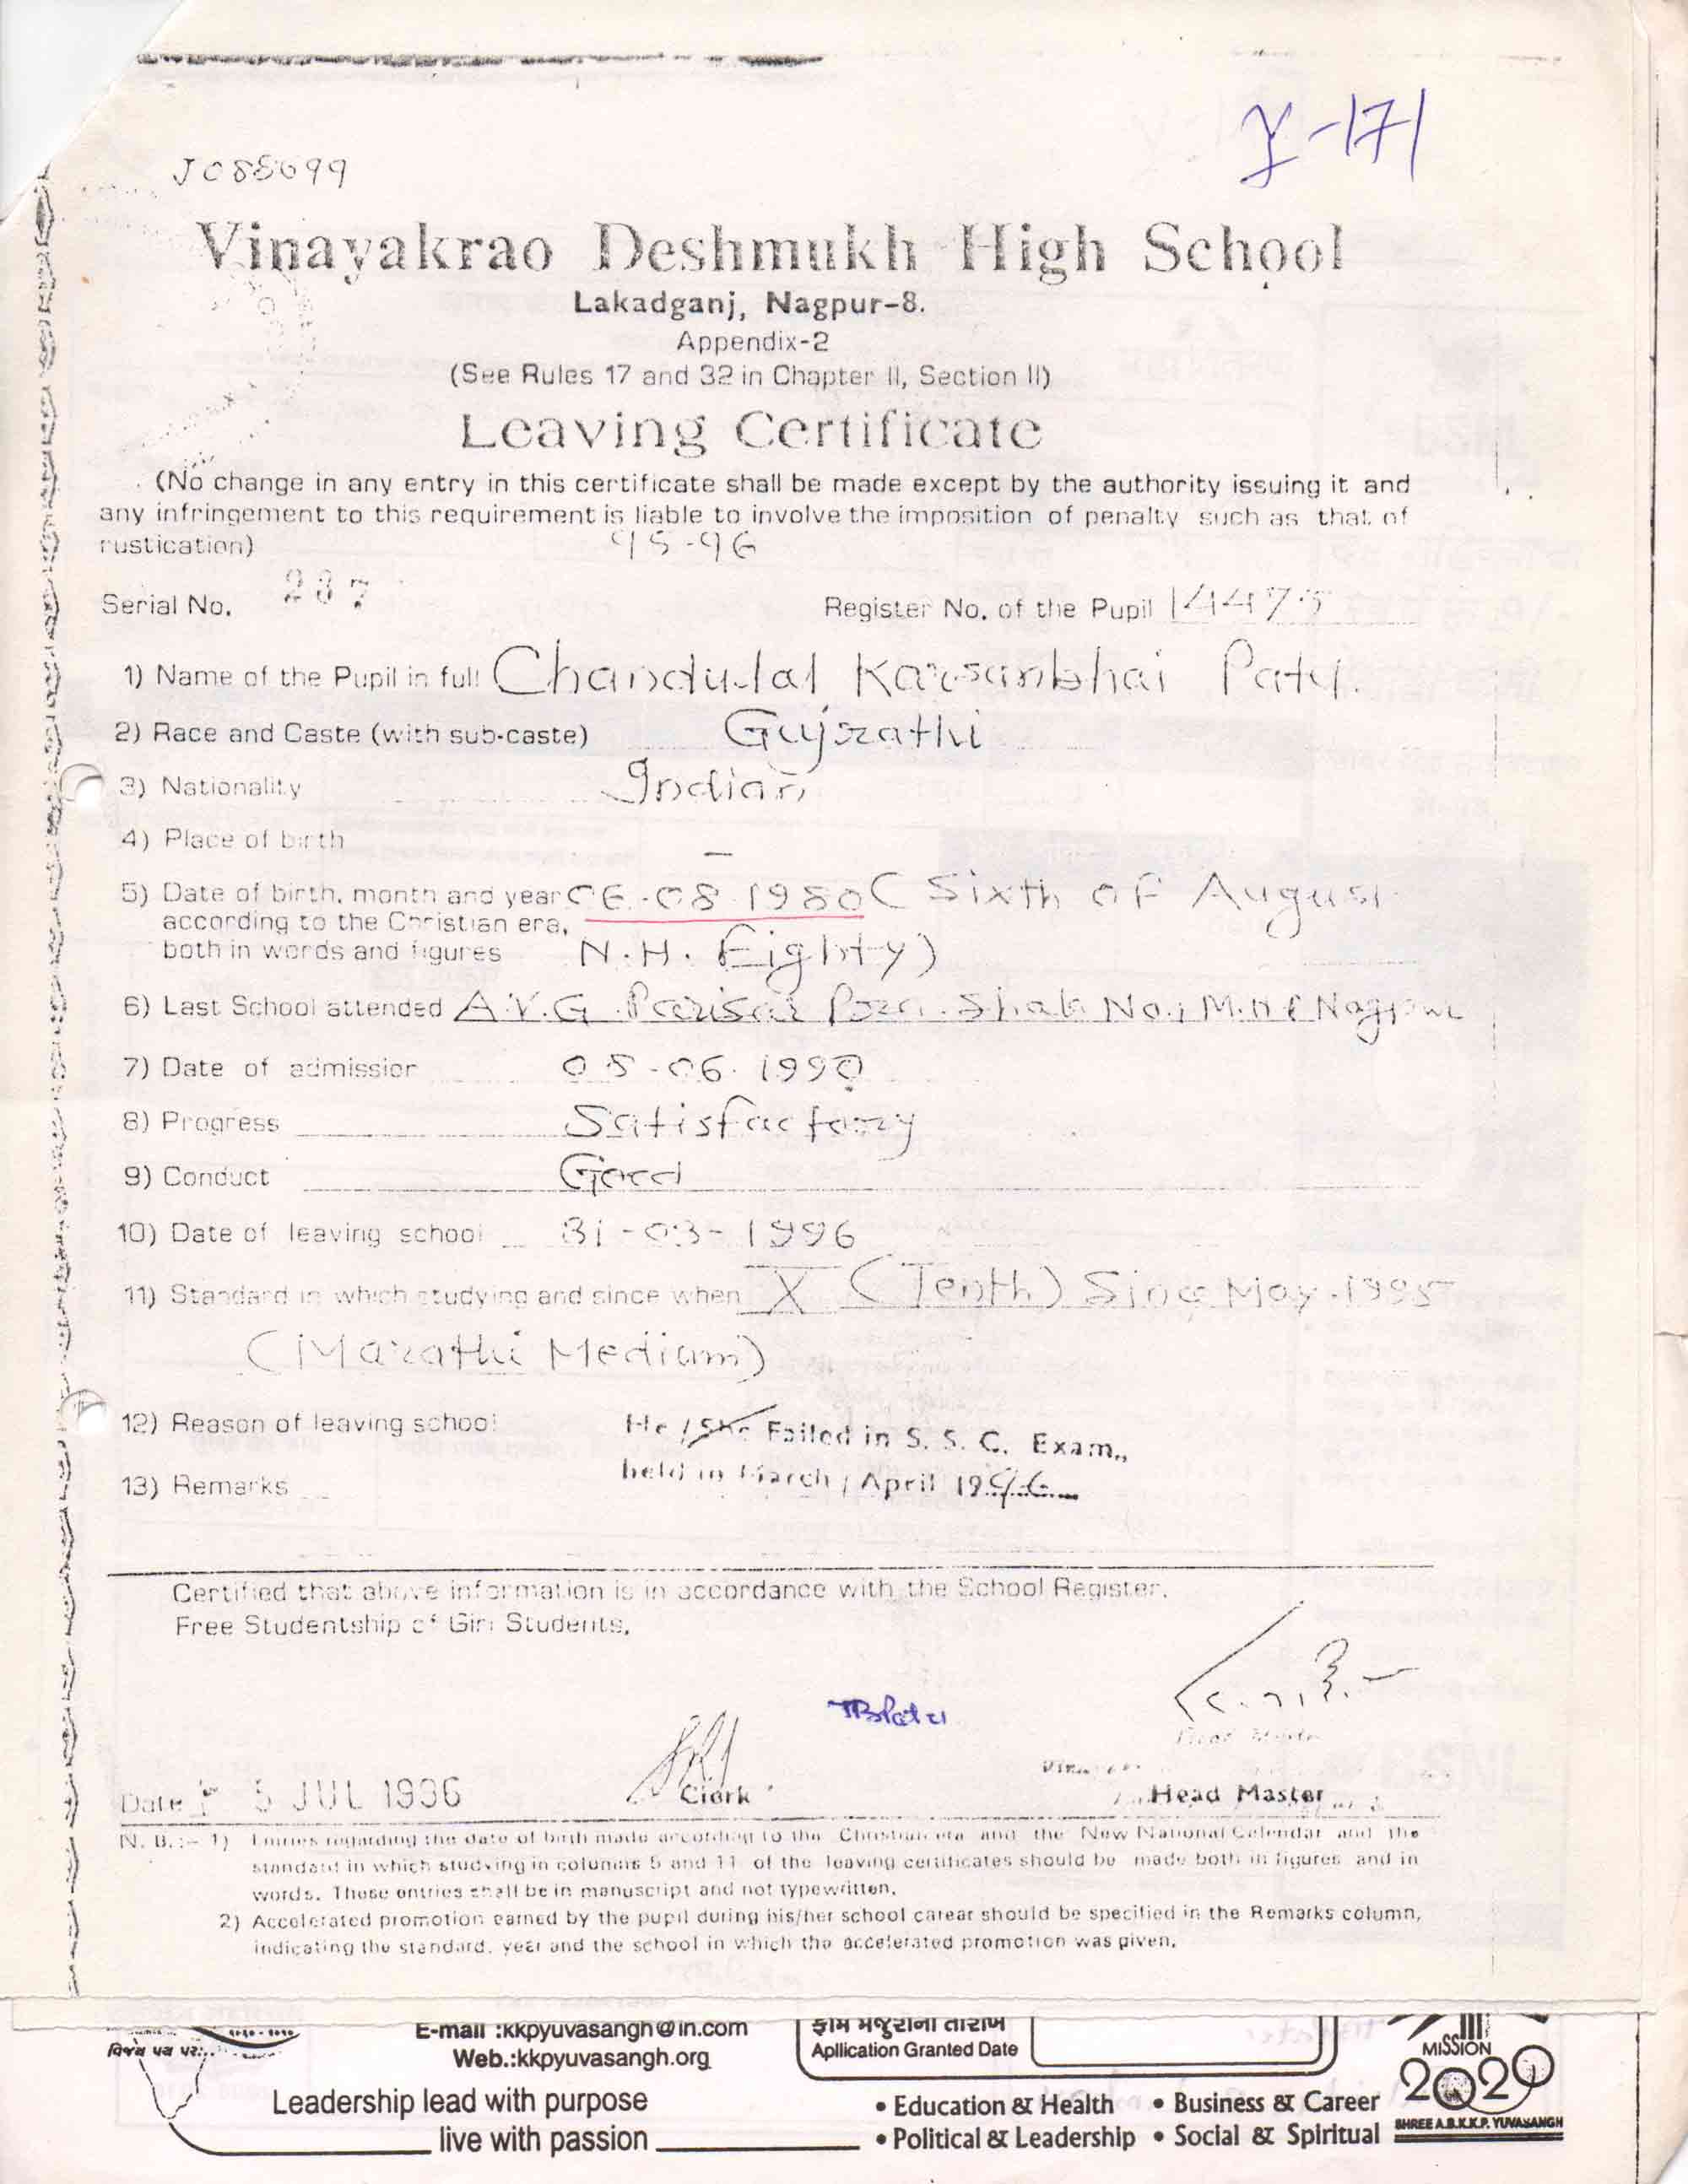 J085699
Y-171
Vinayakrao Deshmukh High School
Lakadganj, Nagpur-8.
Appendix-2
(See Rules 17 and 32 in Chapter II, Section II)
Leaving Certificate
(No change in any entry in this certificate shall be made except by the authority issuing it and
any infringement to this requirement is liable to involve the imposition of penalty such as that of
rustication)
95-96
Serial No. 237 Register No. of the Pupil 14475
1) Name of the Pupil in full Chandulal Karsanbhai Patel.
2) Race and Caste (with sub-caste) Gujrathi
3) Nationality Indian
4) Place of birth —
5) Date of birth, month and year 06-08-1980 ( Sixth of August
according to the Christian era,
both in words and figures N.H. Eighty)
6) Last School attended A.V.G. Parisar No.1 M.N.C Nagpur
7) Date of admission 05-06-1990
8) Progress Satisfactory
9) Conduct Good
10) Date of leaving school 31-03-1996
11) Standard in which studying and since when X (Tenth) Since May-1995
(Marathi Medium)
12) Reason of leaving school He / She Failed in S. S. C. Exam.,
13) Remarks held in March / April 1996
Certified that above information is in accordance with the School Register.
Free Studentship of Girl Students.
Head Master
Date 5 JUL 1996 Clerk Head Master
N. B. :- 1) Entries regarding the date of birth made according to the Christian era and the New National Calendar and the
standard in which studying in columns 5 and 11 of the leaving certificates should be made both in figures and in
words. These entries shall be in manuscript and not typewritten.
2) Accelerated promotion earned by the pupil during his/her school carear should be specified in the Remarks column,
indicating the standard, year and the school in which the accelerated promotion was given.
E-mail :kkpyuvasangh@in.com
Web.:kkpyuvasangh.org
ફોર્મ મંજૂરીની તારીખ
Apllication Granted Date
Leadership lead with purpose
live with passion
• Education & Health • Business & Career
• Political & Leadership • Social & Spiritual
MISSION
2020
SHREE A.B.K.K.P. YUVASANGH